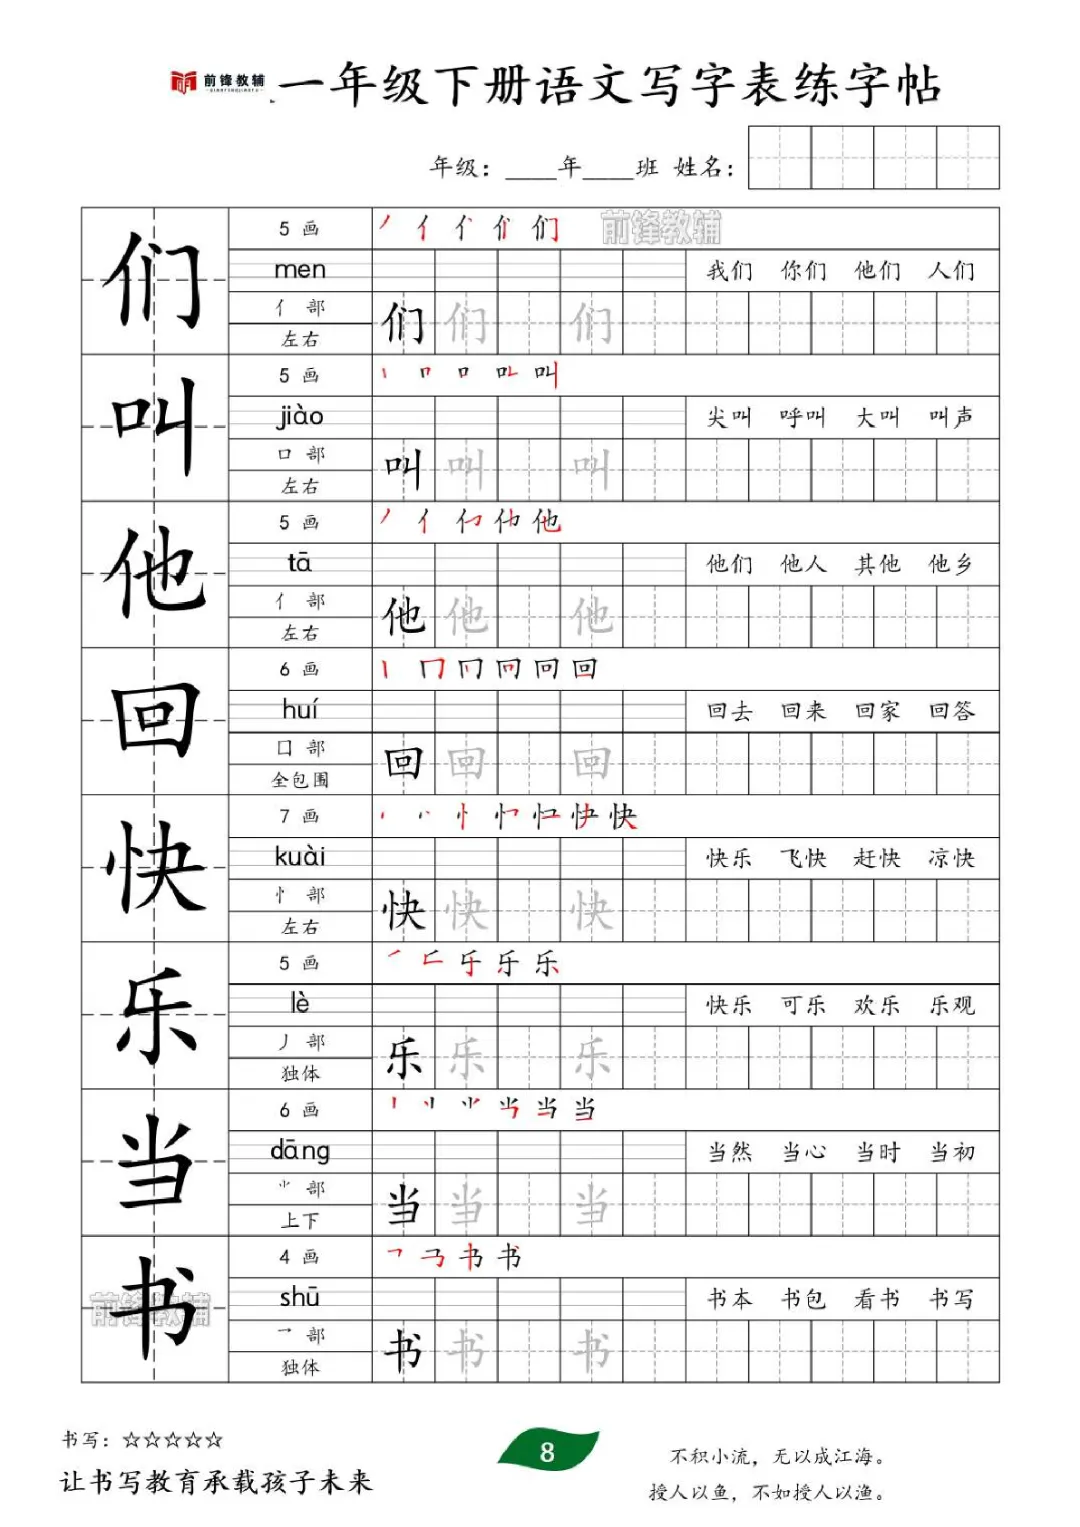 前锋教辅
QIANFENGJIAOFU
一年级下册语文写字表练字帖
年级：____年____班 姓名：
们
5 画
丿 亻 亻 们 们
前锋教辅
men
我们 你们 他们 人们
亻 部
左右
们 们 们
叫
5 画
jiào
尖叫 呼叫 大叫 叫声
口 部
左右
叫 叫 叫
他
5 画
tā
他们 他人 其他 他乡
亻 部
左右
他 他 他
回
6 画
huí
回去 回来 回家 回答
囗 部
全包围
回 回 回
快
7 画
kuài
快乐 飞快 赶快 凉快
忄 部
左右
快 快 快
乐
5 画
lè
快乐 可乐 欢乐 乐观
丿 部
独体
乐 乐 乐
当
6 画
dāng
当然 当心 当时 当初
⺌ 部
上下
当 当 当
书
4 画
shū
书本 书包 看书 书写
乛 部
独体
书 书 书
前锋教辅
书写：☆☆☆☆☆
让书写教育承载孩子未来
8
不积小流，无以成江海。
授人以鱼，不如授人以渔。